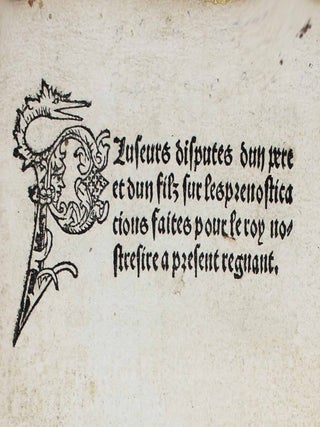 Pluseurs disputes dun pere
et dun filz sur lesprenostica
cions faites pour le roy no-
stresire a present regnant.